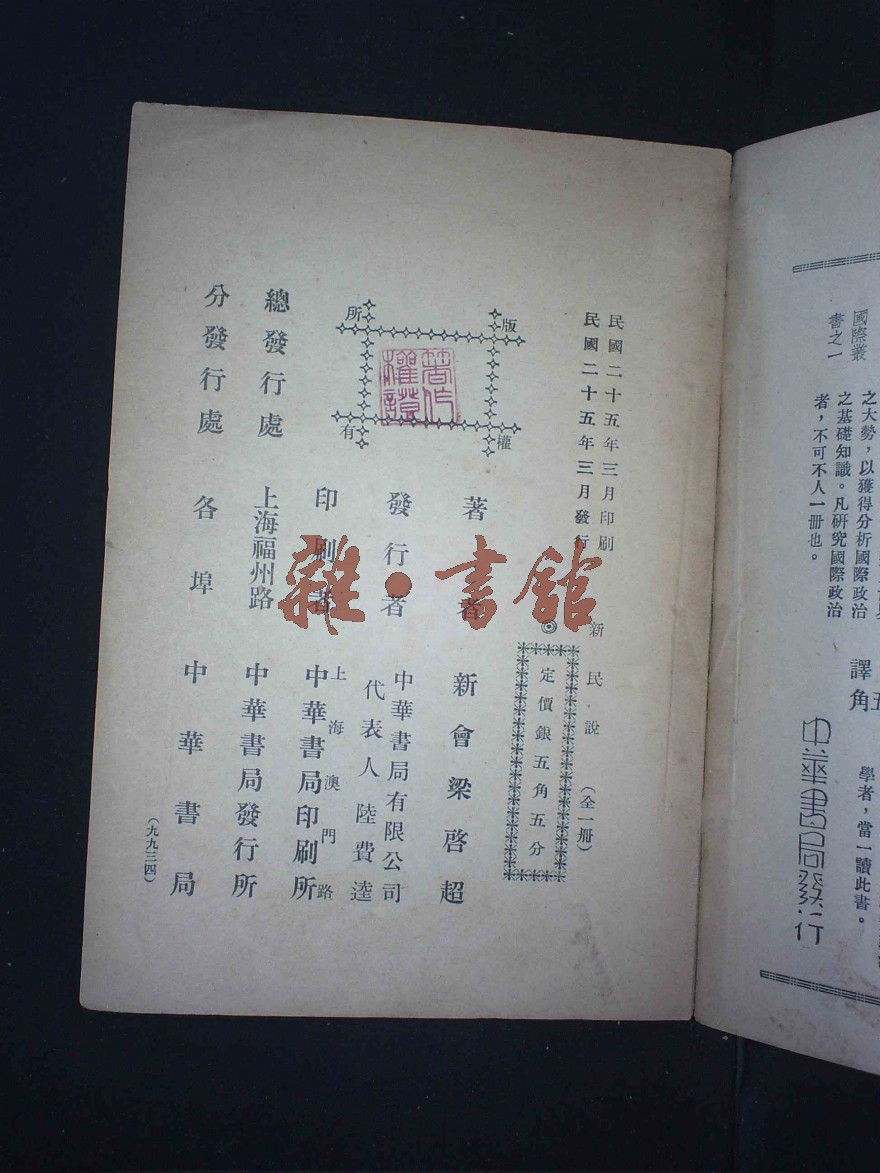 國際叢
書之一
之大勢，以獲得分析國際政治
之基礎知識。凡研究國際政治
者，不可不人一冊也。
譯
角五
學者，當一讀此書。
中華書局發行
民國二十五年三月印刷
民國二十五年三月發行
新民說（全一冊）
◎
定價銀五角五分
版權所有
著作權證
著者 新會梁啓超
發行者 中華書局有限公司
代表人陸費逵
印刷者 上海澳門路
中華書局印刷所
總發行處 上海福州路 中華書局發行所
分發行處 各埠 中華書局
（九九三四）
雜·書館